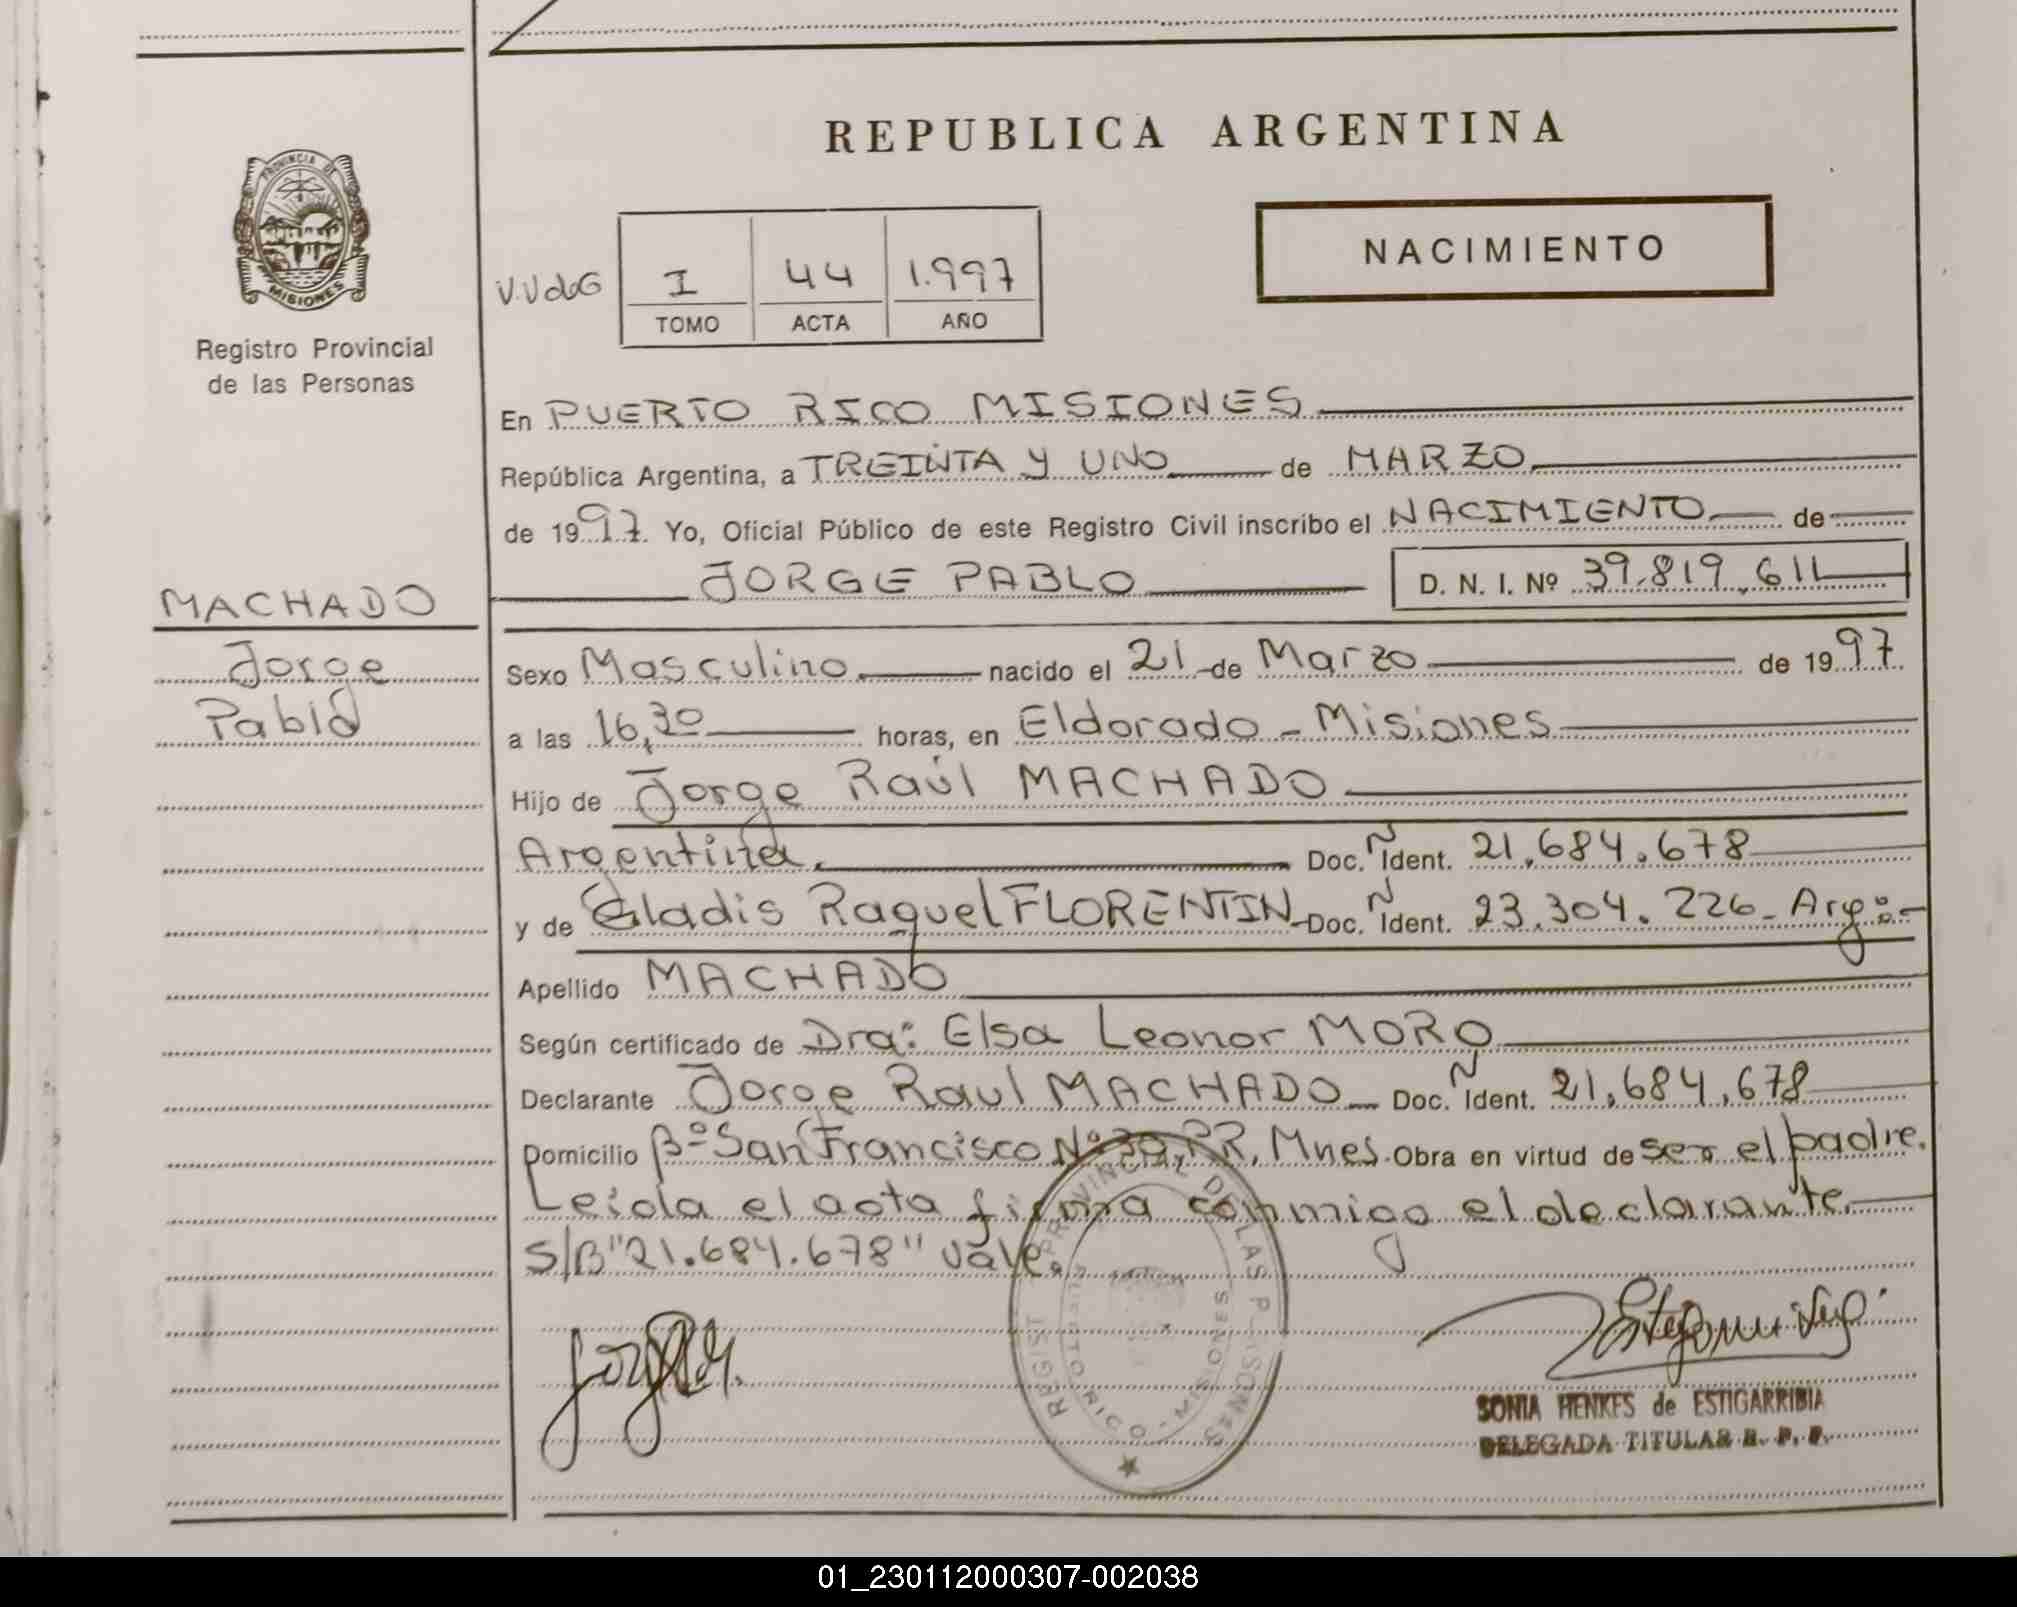 REPUBLICA ARGENTINA
PROVINCIA DE
MISIONES
Registro Provincial
de las Personas
NACIMIENTO
V.VdG I 44 1.997
TOMO ACTA AÑO
En PUERTO RICO MISIONES
República Argentina, a TREINTA Y UNO de MARZO
de 1997. Yo, Oficial Público de este Registro Civil inscribo el NACIMIENTO de
JORGE PABLO D. N. I. Nº 39.819.611
MACHADO
Jorge
Pablo
Sexo Masculino nacido el 21 de Marzo de 1997.
a las 16,30 horas, en Eldorado - Misiones
Hijo de Jorge Raúl MACHADO
Argentina. Doc. Ñ Ident. 21.684.678
y de Gladis Raquel FLORENTIN - Doc. Ñ Ident. 23.304.226 - Arg:-
Apellido MACHADO
Según certificado de Dra: Elsa Leonor MORO
Declarante Jorge Raul MACHADO Doc. Ñ Ident. 21.684.678
Domicilio Bº San Francisco Nº 30, PR, Mnes. Obra en virtud de ser el padre.
Leida el acta firma conmigo el declarante.
S/B "21.684.678" vale.
SONIA HENKES de ESTIGARRIBIA
DELEGADA TITULAR R. P. P.
01_230112000307-002038